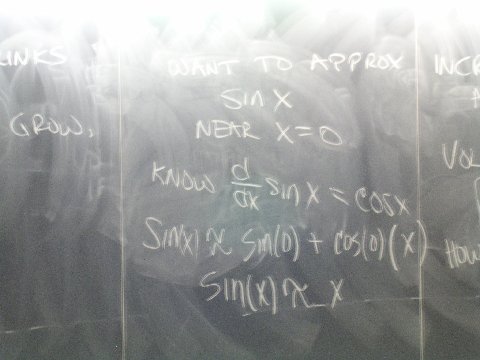 LINKS
GROW,
WANT TO APPROX
sin x
NEAR x=0
KNOW d/dx sin x = cosx
Sin(x) ≈ sin(0) + cos(0)(x)
Sin(x) ≈ x
INCR
VOL
HOW